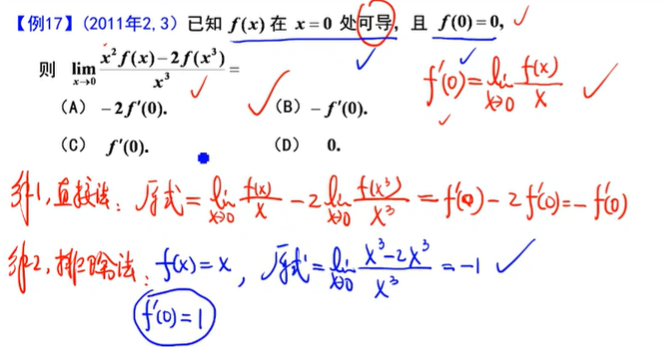 【例17】(2011年2,3) 已知 f(x) 在 x=0 处可导, 且 f(0)=0, ✓
则 lim_{x→0} (x²f(x)-2f(x³))/x³ =
(A) -2f′(0). ✓(B) -f′(0).
(C) f′(0). (D) 0.
f′(0)=lim_{x→0} f(x)/x ✓
解1,直接法: 原式=lim_{x→0} f(x)/x - 2lim_{x→0} f(x³)/x³ = f′(0)-2f′(0)=-f′(0)
解2,排除法: f(x)=x, 原式=lim_{x→0} (x³-2x³)/x³ =-1 ✓
f′(0)=1